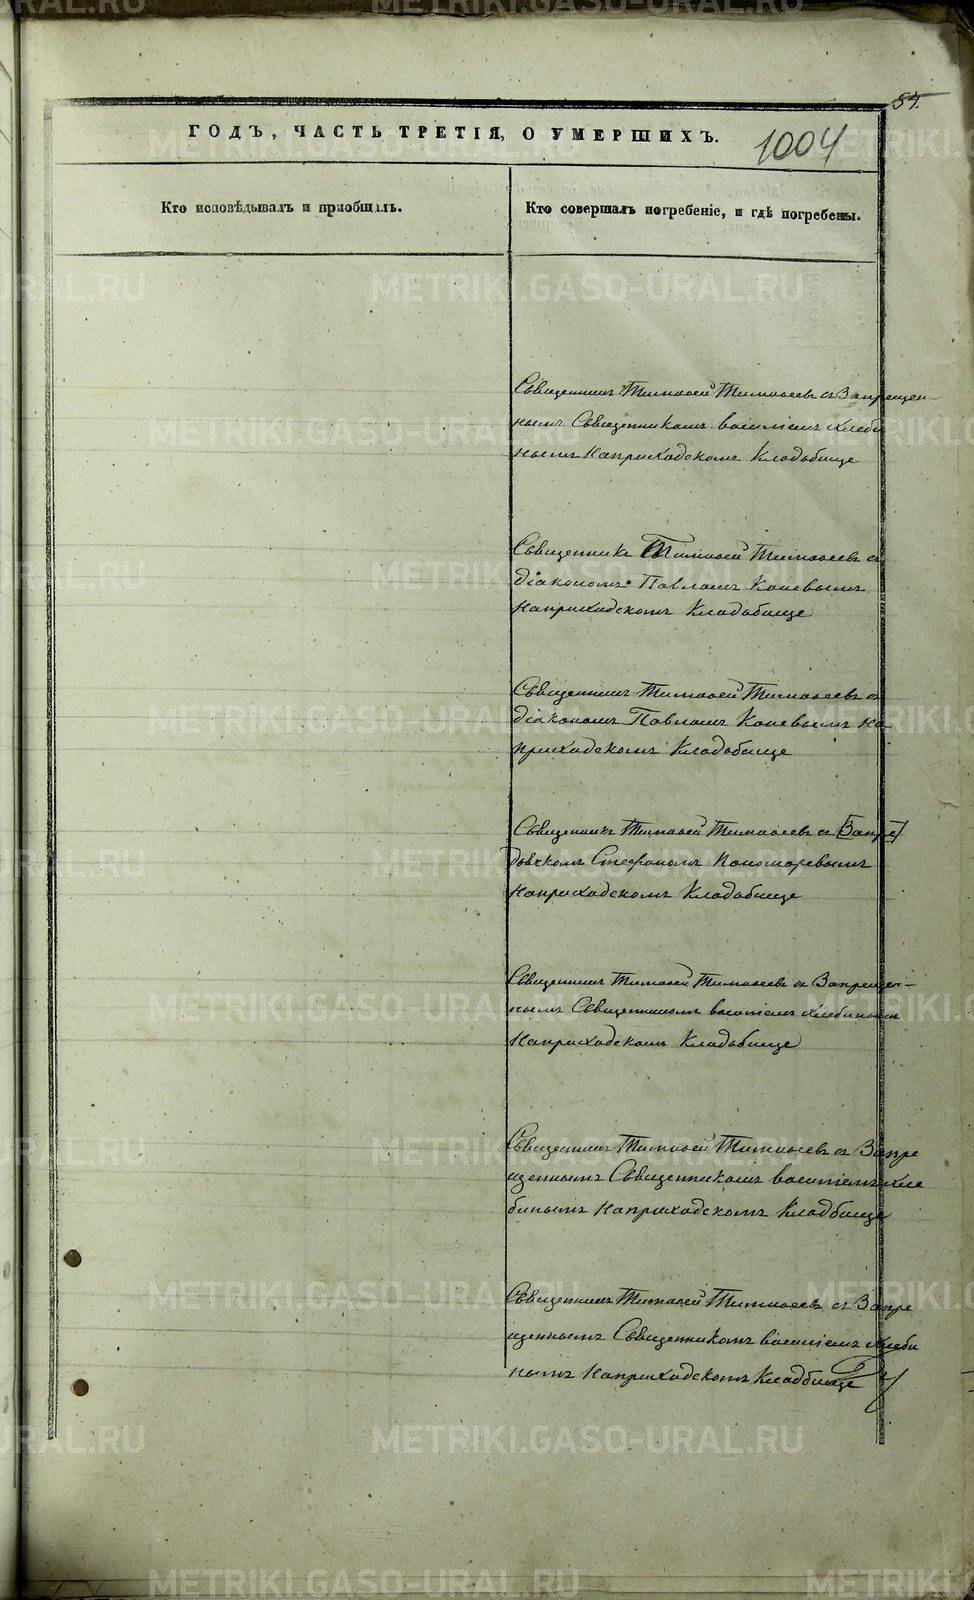 54.
ГОДЪ, ЧАСТЬ ТРЕТІЯ, О УМЕРШИХЪ.
1004
Кто исповѣдывалъ и пріобщалъ.
Кто совершалъ погребеніе, и гдѣ погребены.
Священникъ Тимофей Тимофеевъ съ Запрещен-
нымъ Священникомъ василіемъ Хлеби
нымъ на приходскомъ Кладбище
Священникъ Тимофей Тимофеевъ съ
діакономъ Павломъ Коневымъ
на приходскомъ Кладбище
Священникъ Тимофей Тимофеевъ съ
діакономъ Павломъ Коневымъ на
приходскомъ Кладбище
Священникъ Тимофей Тимофеевъ съ [Запре]
дьячкомъ Стефаномъ Пономаревымъ
на приходскомъ Кладбище
Священникъ Тимофей Тимофеевъ съ Запрещен-
нымъ Священникомъ василіемъ Хлебинымъ
на приходскомъ Кладбище
Священникъ Тимофей Тимофеевъ съ Запре
щеннымъ Священникомъ василіемъ Хле
бинымъ на приходскомъ Кладбище
Священникъ Тимофей Тимофеевъ съ Запре
щеннымъ Священникомъ василіемъ Хлеби
нымъ на приходскомъ Кладбище
METRIKI.GASO-URAL.RU